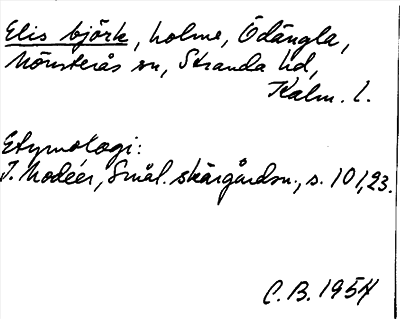 Elis björk, holme, Ödängla,
Mönsterås sn, Stranda hd,
Kalm. l.
Etymologi:
I. Modéer, Smål. skärgårdsn., s. 101, 23.
C. B. 1954